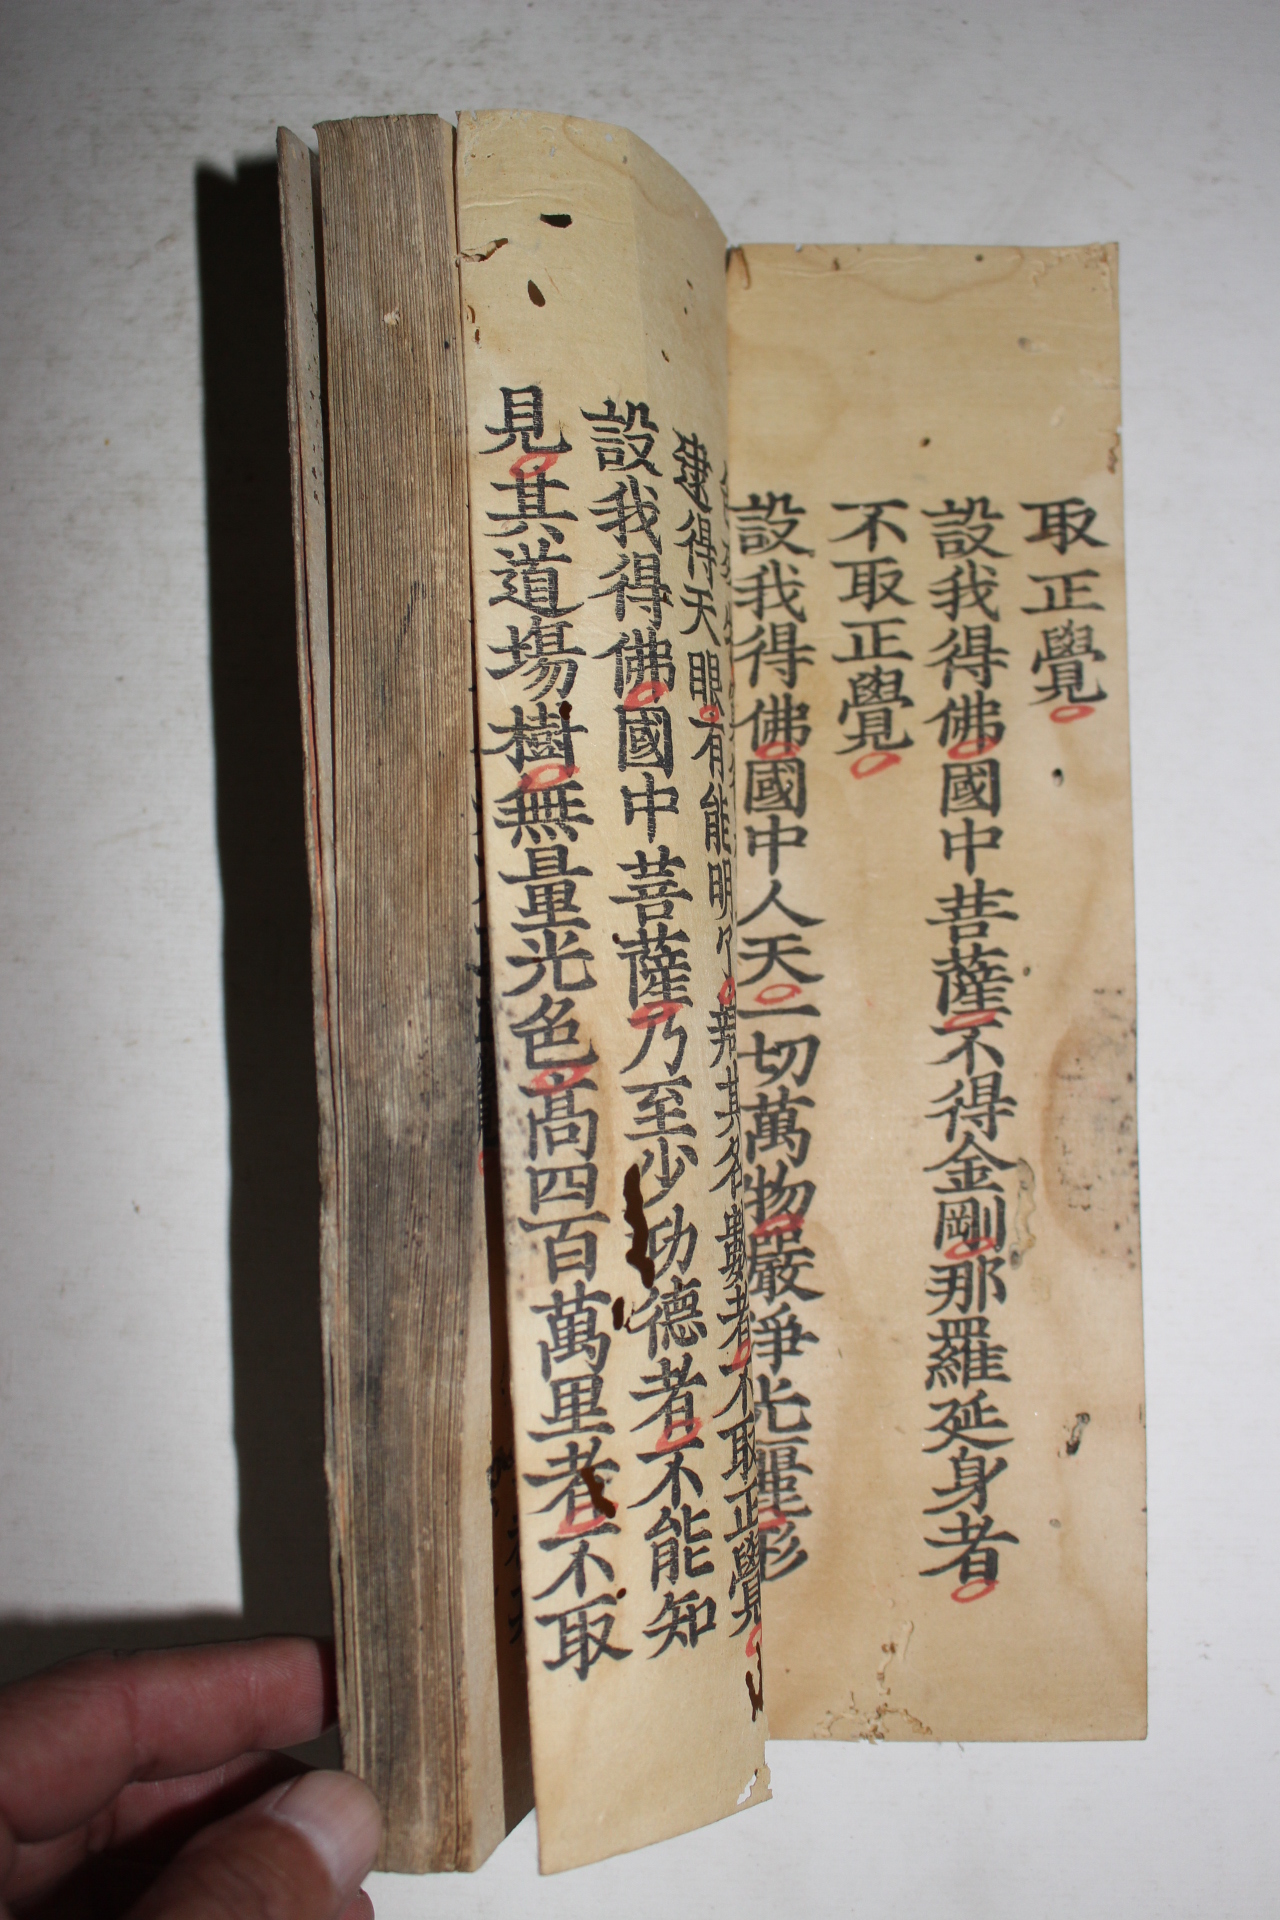 取正覺
設我得佛國中菩薩不得金剛那羅延身者
不取正覺
設我得佛國中人天一切萬物嚴淨光麗形
逮得天眼有能明了辯其名數者不取正覺
設我得佛國中菩薩乃至少功德者不能知
見其道場樹無量光色高四百萬里者不取